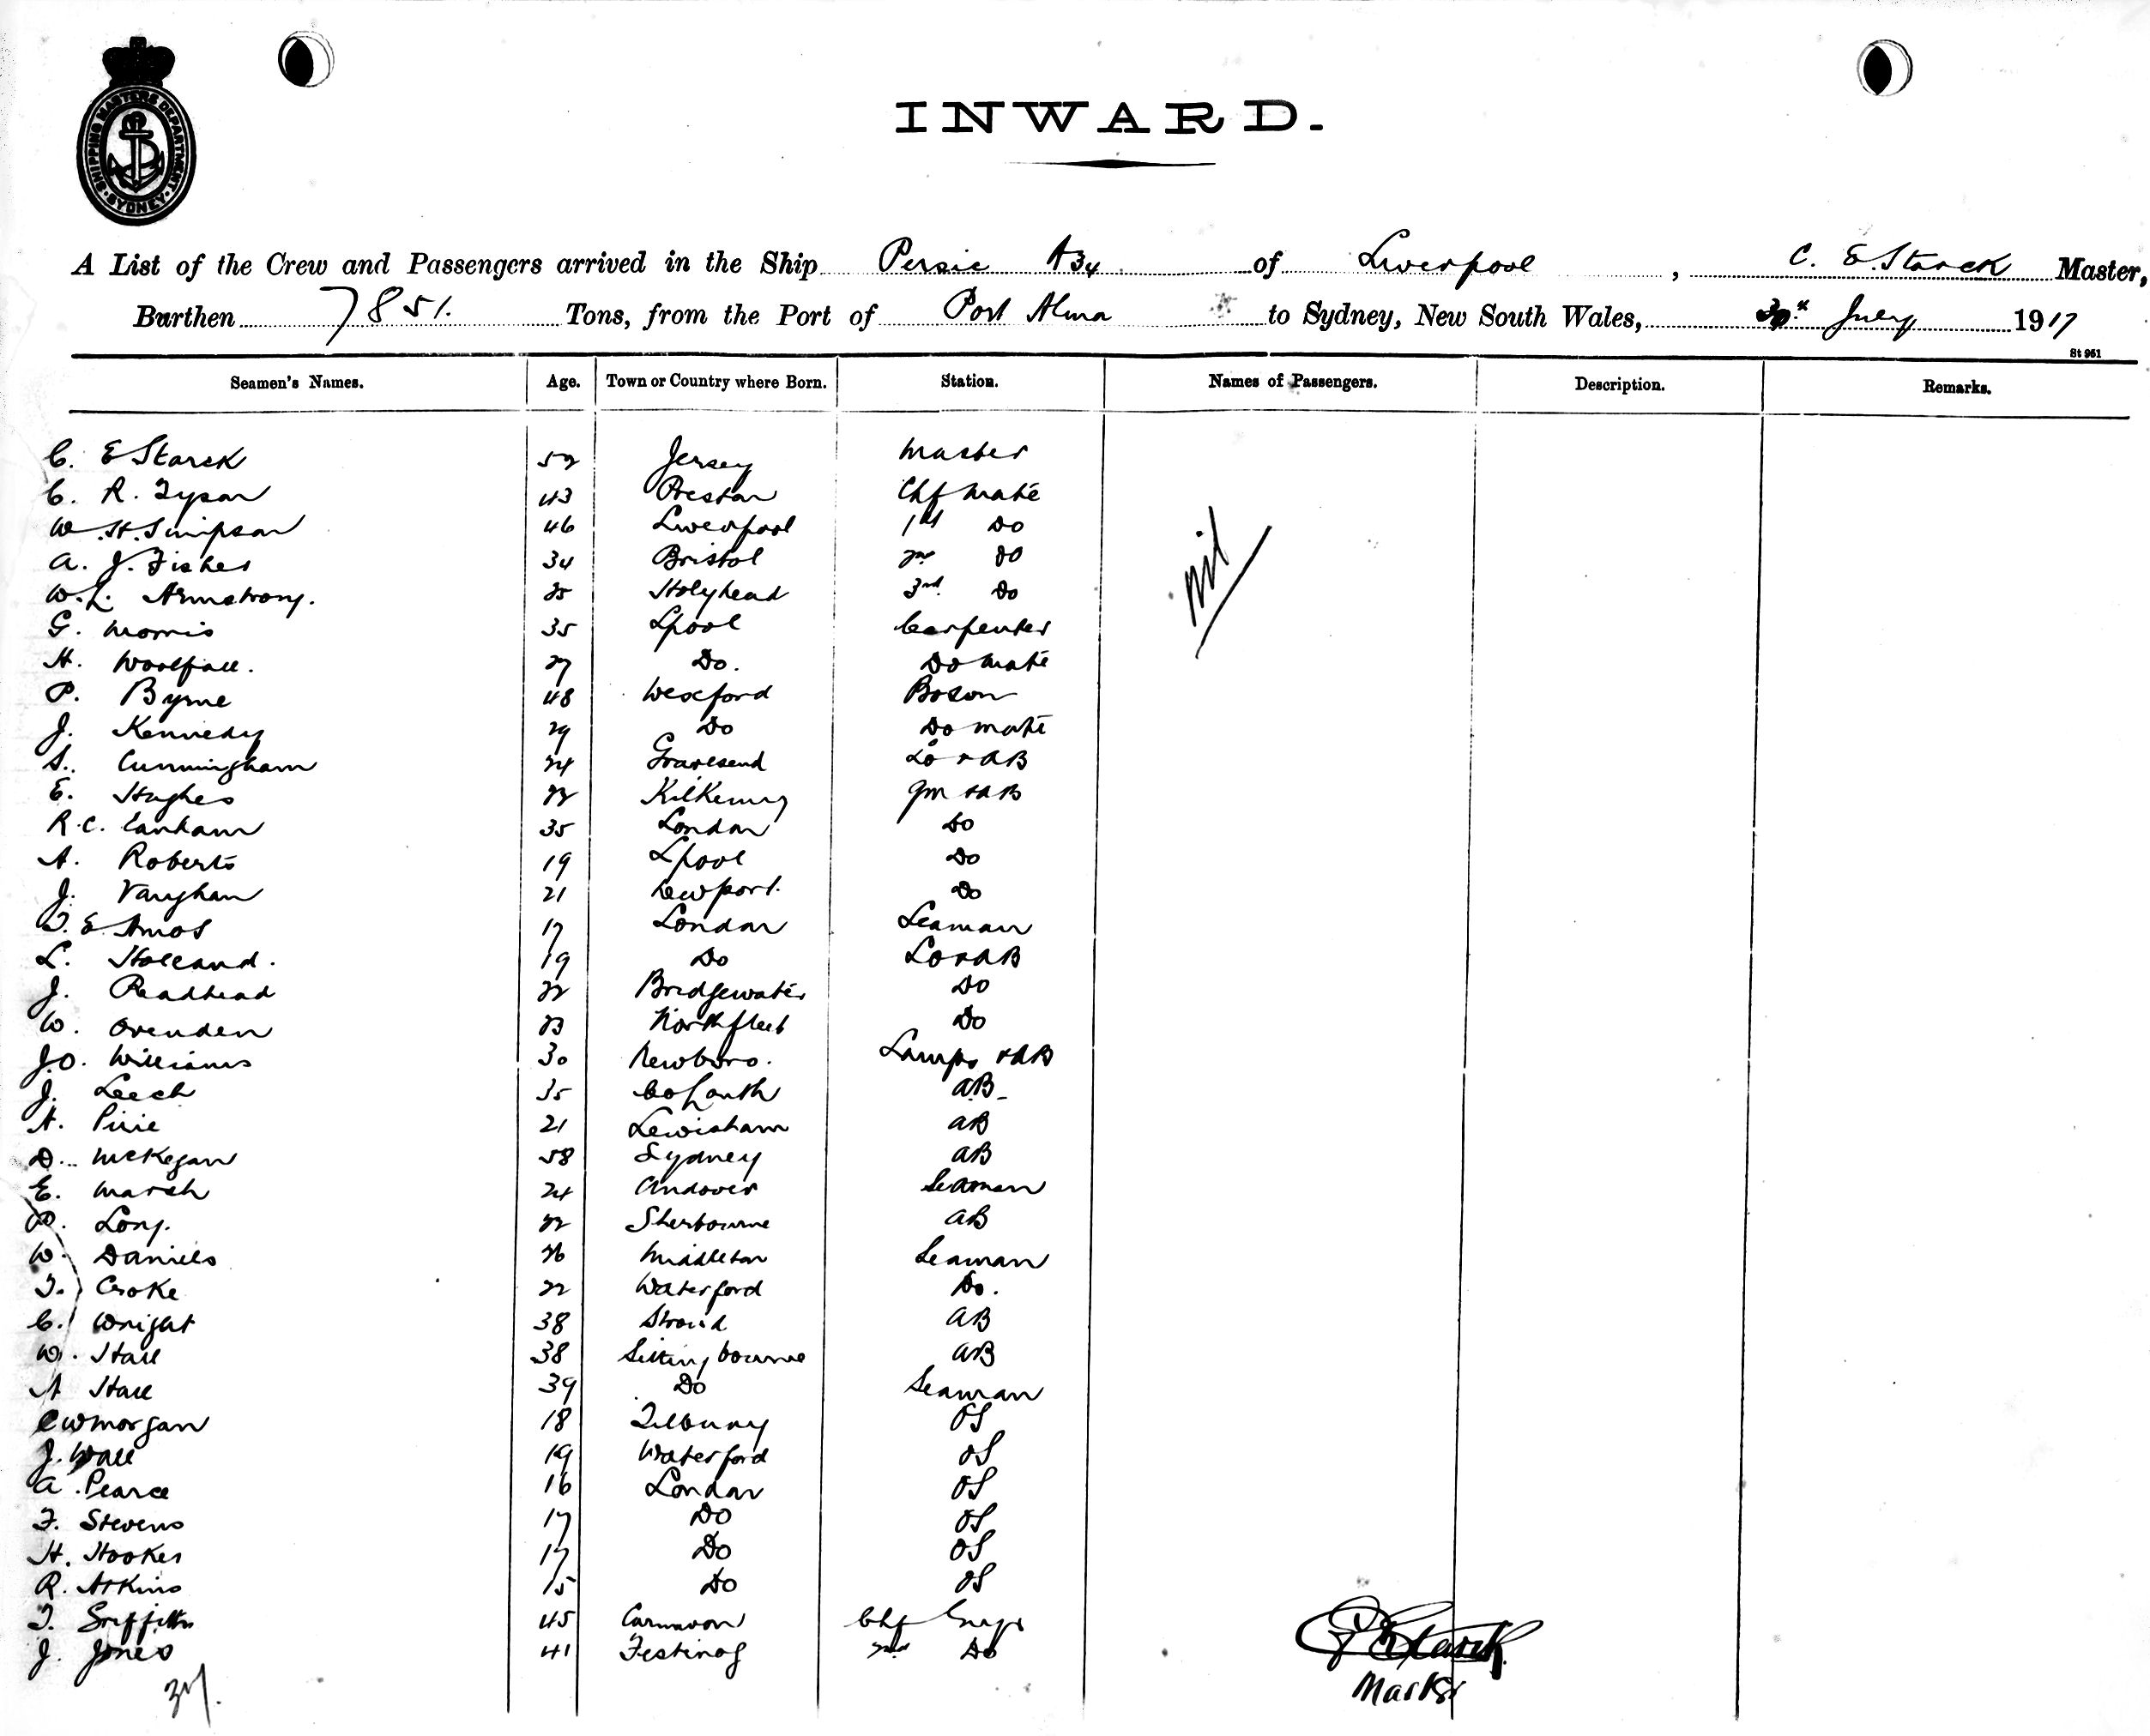 SHIPPING MASTERS DEPARTMENT · SYDNEY ·
INWARD.
A List of the Crew and Passengers arrived in the Ship Persic A34 of Liverpool, C. E. Starck Master,
Burthen 7851. Tons, from the Port of Port Alma to Sydney, New South Wales, July 1917
St 961
Seamen's Names. Age. Town or Country where Born. Station. Names of Passengers. Description. Remarks.
C. E Starck 52 Jersey Master
C. R. Tyson 43 Preston Chf mate
W. H. Simpson 46 Liverpool 1st Do
nil
A. J. Fisher 34 Bristol 2nd Do
W. L. Armstrong. 25 Holyhead 3rd Do
G. Morris 35 Lpool Carpenter
H. Woolfall. 27 Do. Do mate
P. Byrne 48 Wexford Bosun
J. Kennedy 29 Do Do mate
S. Cunningham 24 Gravesend Lo + AB
E. Hughes 22 Kilkenny Qm + AB
R. C. Lanham 35 London Do
A. Roberts 19 Lpool Do
J. Vaughan 21 Newport. Do
E Amos 17 London Seaman
L. Holland. 19 Do Lo + AB
J. Readhead 22 Bridgewater Do
W. Ovenden 23 Northfleet Do
J. O. Williams 30 Newboro. Lamps + AB
J. Leech 35 Co Louth AB
A. Pirie 21 Lewisham AB
D. McKegan 58 Sydney AB
E. Marsh 24 Andover Seaman
P. Long. 22 Sherbourne AB
W. Daniels 26 Middleton Seaman
T. Croke 22 Waterford Do.
C. Wright 38 Strood AB
W. Hall 38 Sittingbourne AB
A Hall 39 Do Seaman
C W Morgan 18 Tilbury OS
J. Wall 19 Waterford OS
A. Pearce 16 London OS
F. Stevens 17 Do OS
H. Hooker 17 Do OS
R. Atkins 15 Do OS
T. Griffiths 45 Carnarvon Chf Engr
J. Jones 41 Festiniog 2nd Do
C E Starck
Master
37.